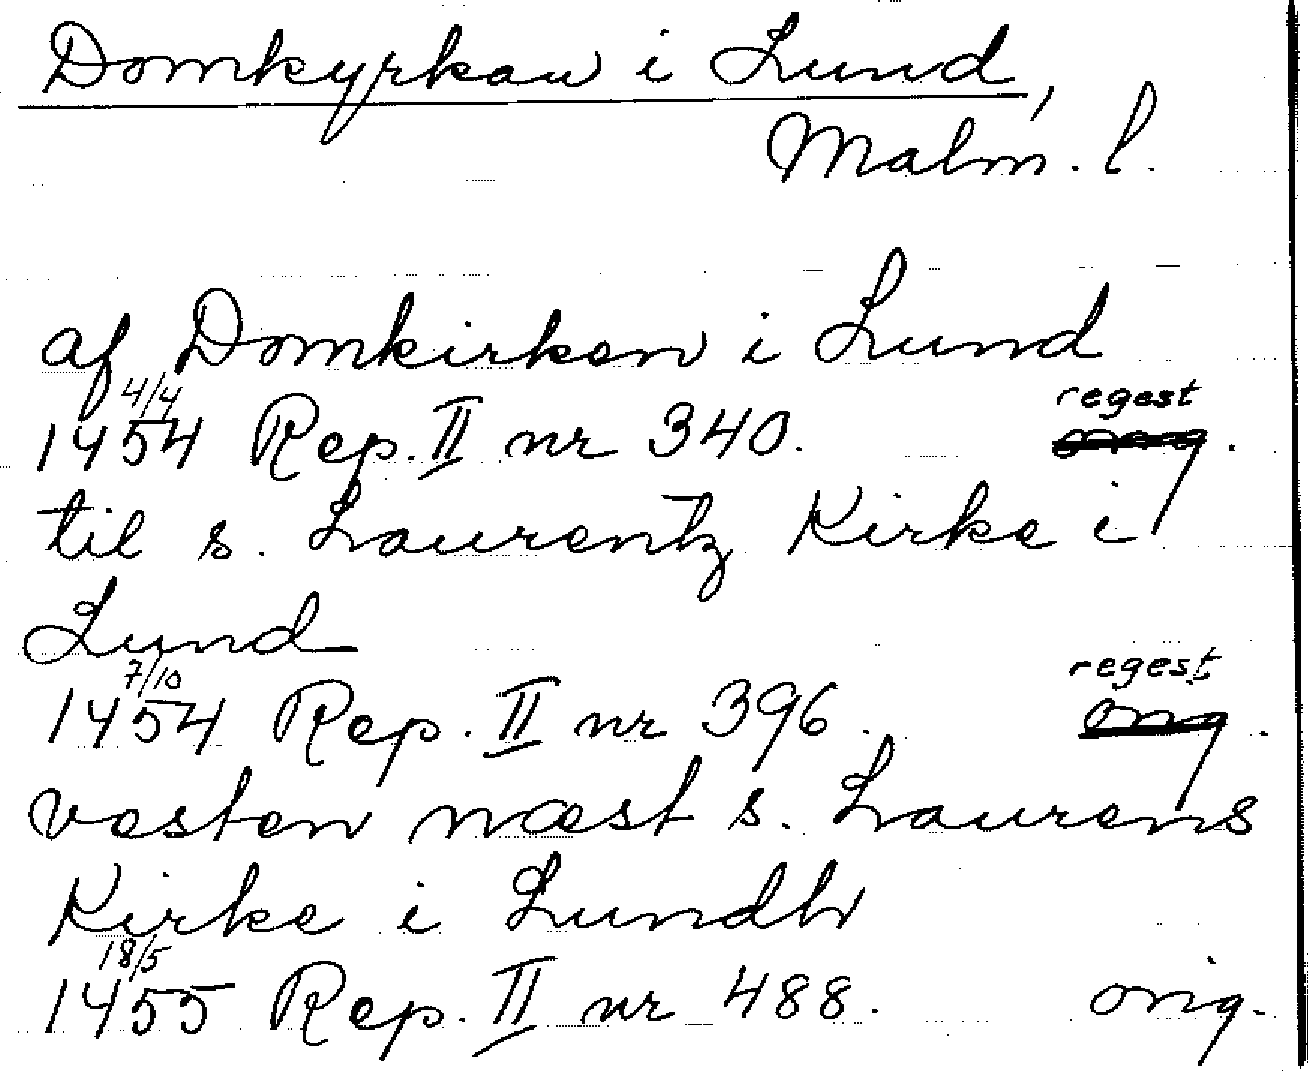 Domkyrkan i Lund,
Malm. l.
af Domkirken i Lund
4/4 regest
1454 Rep. II nr 340. orig.
til s. Laurentz Kirke i
Lund
7/10 regest
1454 Rep. II nr 396. orig.
vesten næst s. Laurens
Kirke i Lundh
18/5
1455 Rep. II nr 488. orig.